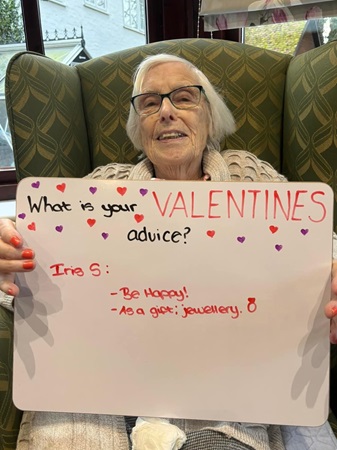 What is your VALENTINES
advice?
Iris S:
- Be Happy!
- As a gift; jewellery.